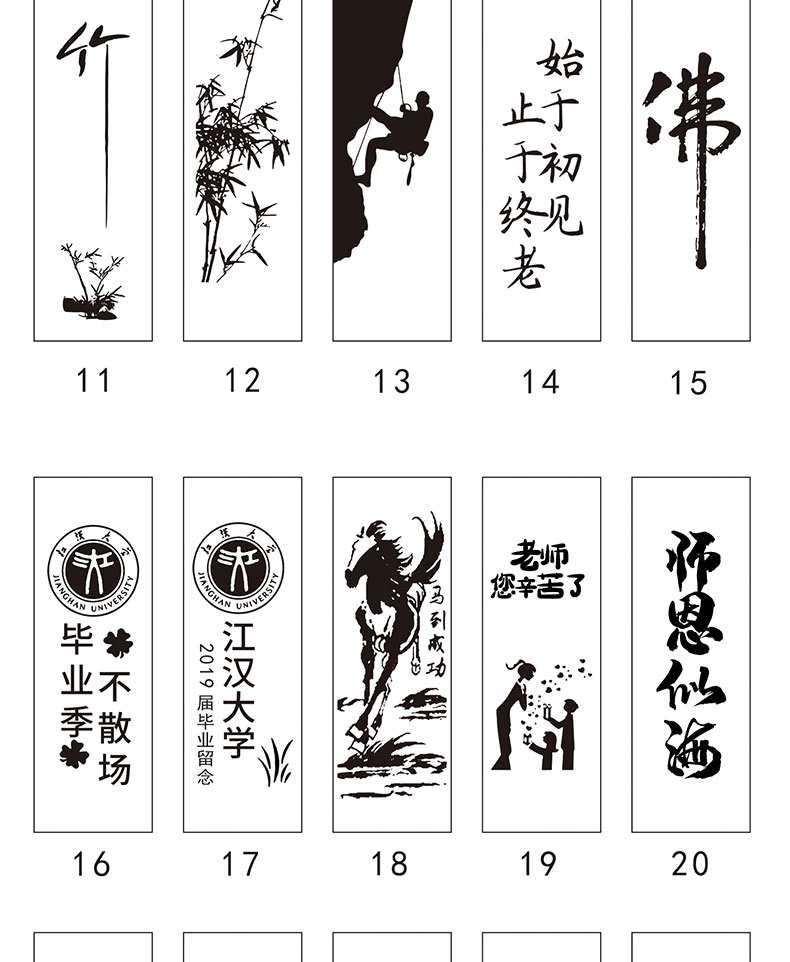 竹
始于初见
止于终老
佛
11
12
13
14
15
江汉大学
JIANGHAN UNIVERSITY
毕业季
不散场
江汉大学
JIANGHAN UNIVERSITY
江汉大学
2019届毕业留念
马到成功
老师
您辛苦了
师恩似海
16
17
18
19
20